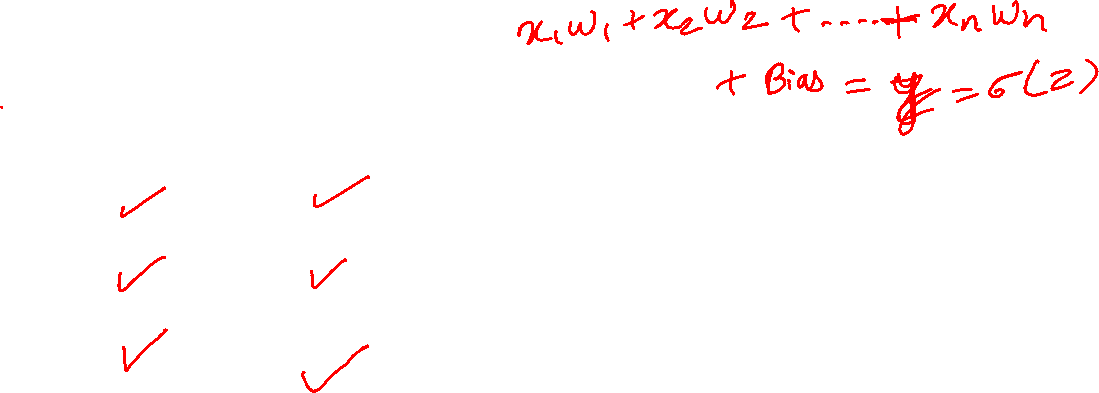 x₁w₁ + x₂w₂ + ..... + xₙwₙ
+ Bias = = σ(z)
✓ ✓
✓ ✓
✓ ✓